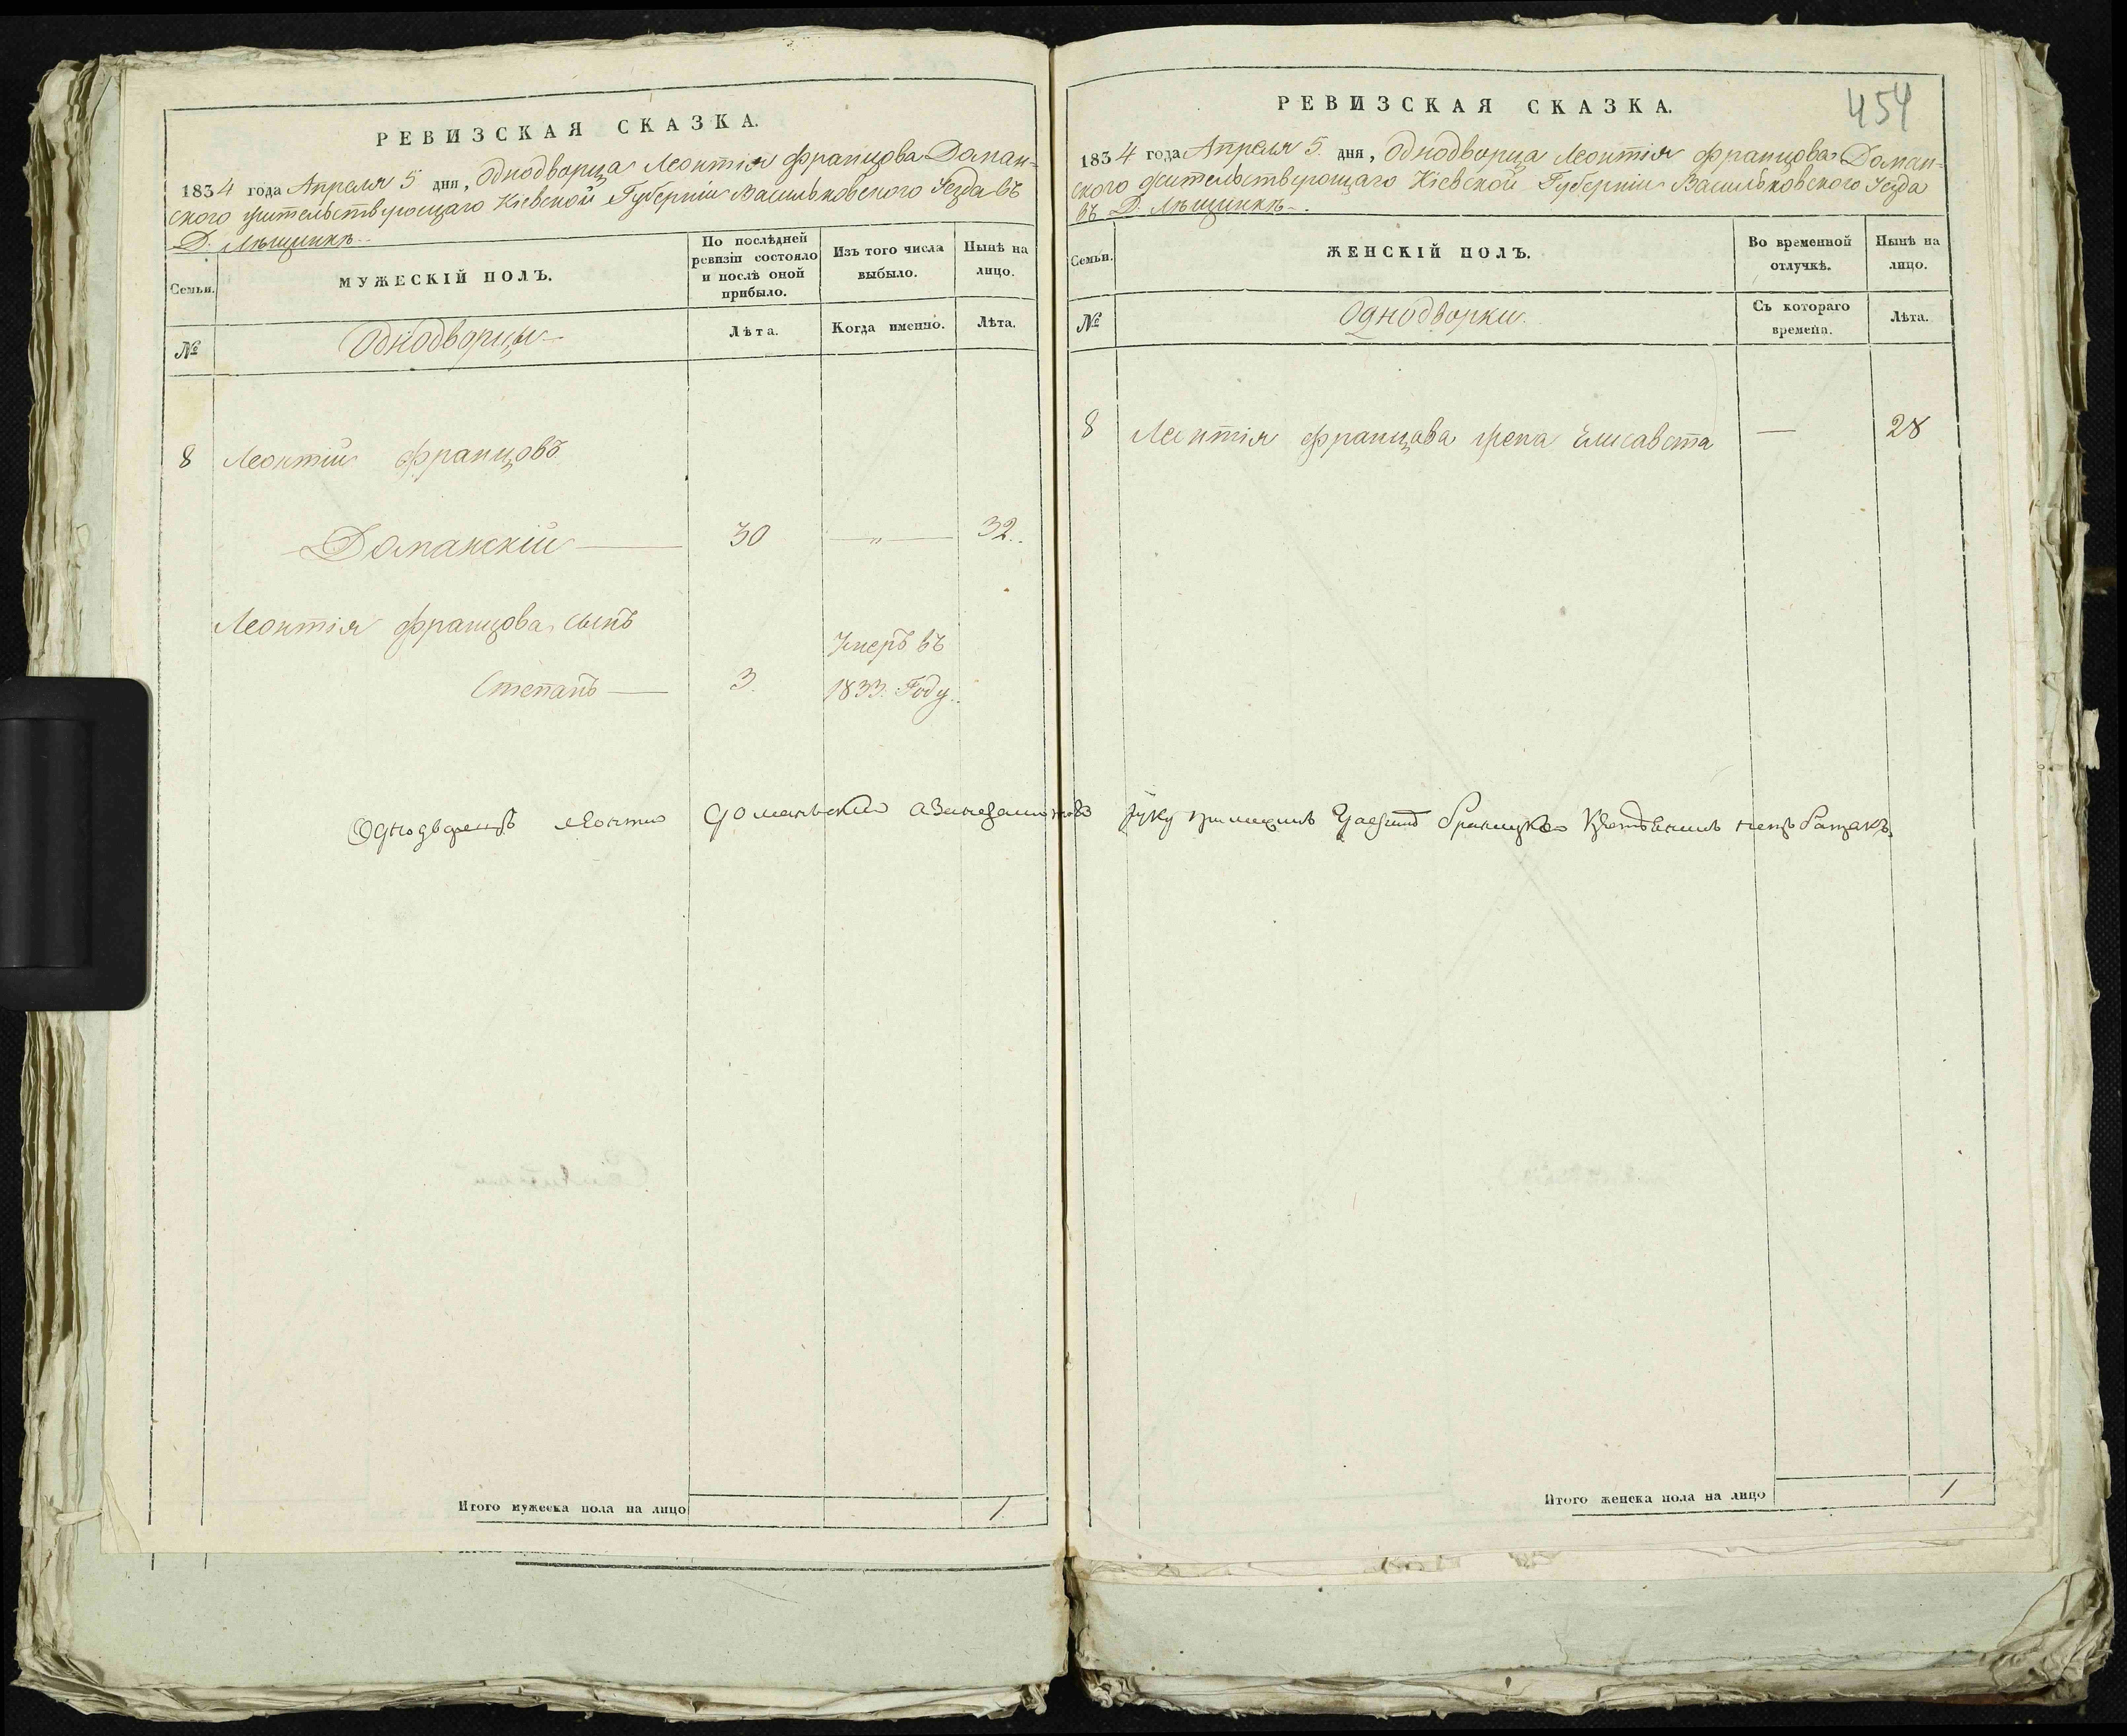 РЕВИЗСКАЯ СКАЗКА.
1834 года Апреля 5 дня, Однодворца Леонтія Францова Доман-
ского жительствующаго Кіевской Губерніи Васильковского Уезда въ
Д.
Семьи.
МУЖЕСКІЙ ПОЛЪ.
По послѣдней ревизіи состояло и послѣ оной прибыло.
Изъ того числа выбыло.
Нынѣ на лицо.
№
Однодворцы
Лѣта.
Когда именно.
Лѣта.
8 Леонтій Францовъ
Доманскій — 30 —„— 32.
Леонтія Францова сынъ
Умеръ въ
Степанъ — 3. 1833. Году.
Однодворецъ Леонти Доманьский
Итого мужеска пола на лицо 1.
454
РЕВИЗСКАЯ СКАЗКА.
1834 года Апреля 5. дня, Однодворца Леонтія Францова Доман-
ского жительствующаго Кіевской Губерніи Васильковского Уезда
въ Д.
Семьи.
ЖЕНСКІЙ ПОЛЪ.
Во временной отлучкѣ.
Нынѣ на лицо.
№
Однодворки.
Съ котораго времени.
Лѣта.
8 Леонтія Францова жена Елисавета — 28
руку
Итого женска пола на лицо 1